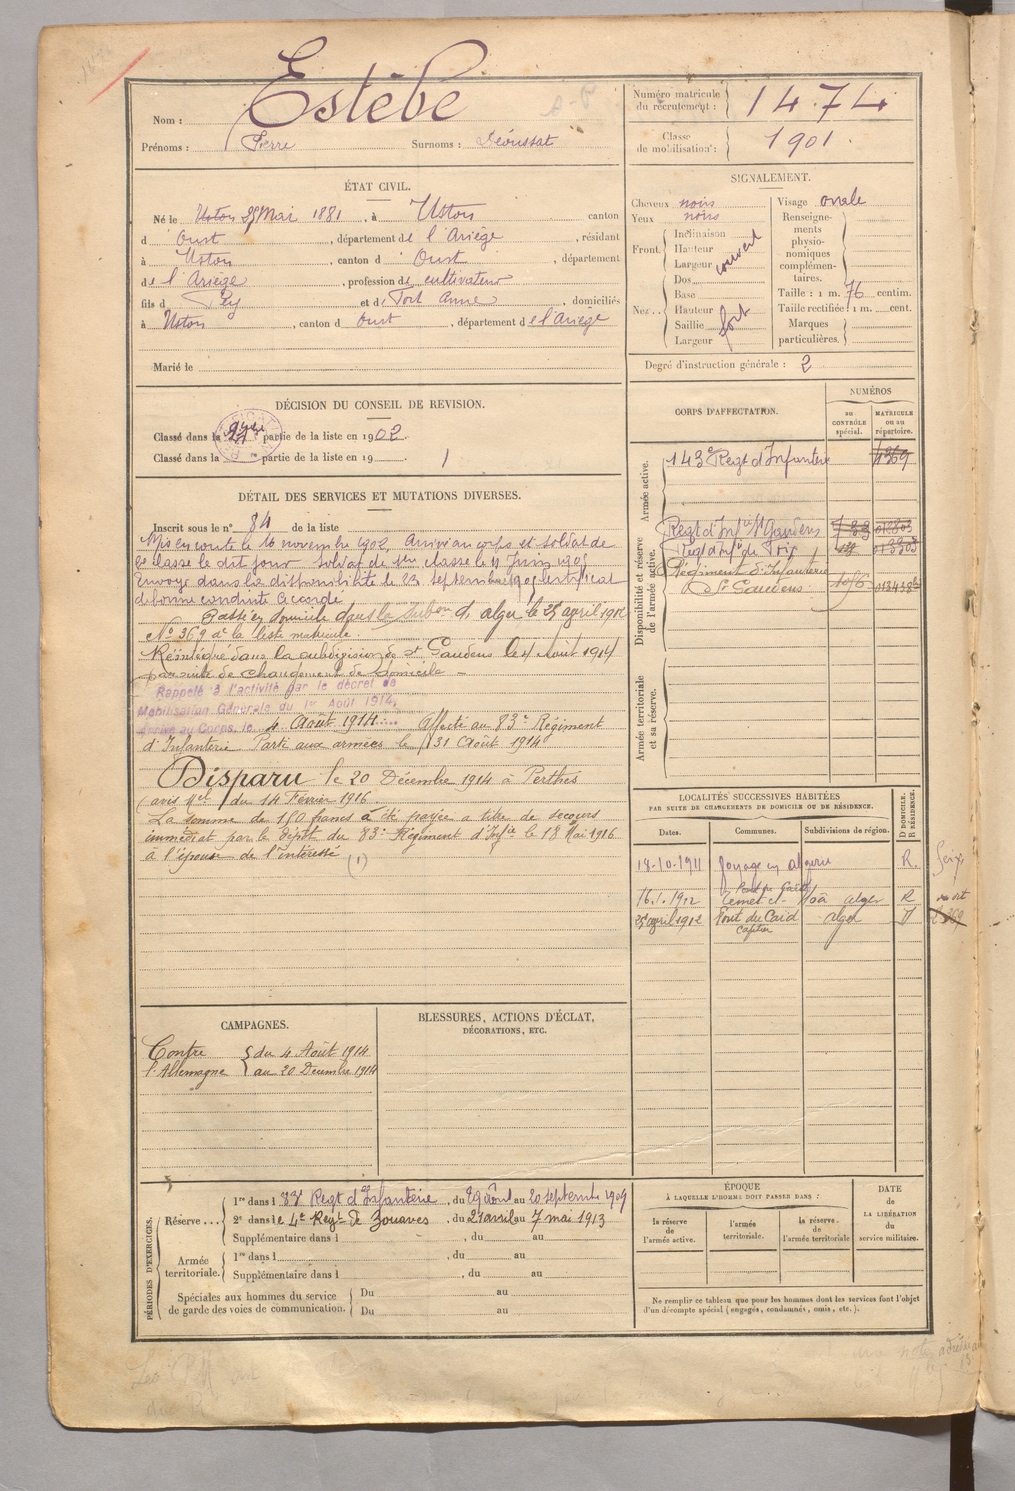 Estèbe
Nom :
Prénoms : Pierre Surnoms :
Numéro matricule du recrutement : 1474
Classe de mobilisation : 1901
ÉTAT CIVIL.
Né le 25 Mai 1881, à Ustou canton
d Oust, département de l'Ariège, résidant
à Ustou, canton d Oust, département
de l'Ariège, profession de cultivateur
fils d et d Tort Anne, domiciliés
à Ustou, canton d Oust, département de l'Ariège
Marié le
SIGNALEMENT.
Cheveux noirs
Yeux noirs
Front. Inclinaison
Hauteur
Largeur couvert
Nez.. Dos
Base
Hauteur
Saillie fort
Largeur
Visage ovale
Renseignements physionomiques complémentaires.
Taille : 1 m. 76 centim.
Taille rectifiée : 1 m. cent.
Marques particulières.
Degré d'instruction générale : 2
DÉCISION DU CONSEIL DE REVISION.
Classé dans la partie de la liste en 1902.
Classé dans la partie de la liste en 19
1
DÉTAIL DES SERVICES ET MUTATIONS DIVERSES.
Inscrit sous le n° 84 de la liste
Mis en route le 16 novembre 1902. Arrivé au corps et soldat de
2e classe le dit jour. Soldat de 1ère classe le 11 Juin 1905
Envoyé dans la disponibilité le 23 septembre 1905 Certificat
de bonne conduite Accordé
Passé en domicile dans la Subon d'alger le 25 avril 1912
N° 369 de la liste matricule.
Réintégré dans la subdivision de St Gaudens le 4 Août 1914
par suite de changement de domicile
Rappelé à l'activité par le décret de
Mobilisation Générale du 1er Août 1914,
Arrivé au Corps, le 4 Août 1914 Affecté au 83e Régiment
d'Infanterie Parti aux armées le 31 Août 1914
Disparu le 20 Décembre 1914 à Perthes
(avis Mel du 14 Février 1916.
La somme de 150 francs a été payée à titre de secours
immédiat par le dépôt du 83e Régiment d'Infie le 18 Mai 1916
à l'épouse de l'intéressé (1)
CORPS D'AFFECTATION.
NUMÉROS
au CONTRÔLE spécial.
MATRICULE ou au répertoire.
Armée active.
143e Regt d'Infanterie 4369
Disponibilité et réserve de l'armée active.
Regt d'Infie St Gaudens
Régiment d'Infanterie
St Gaudens
Armée territoriale et sa réserve.
LOCALITÉS SUCCESSIVES HABITÉES
PAR SUITE DE CHANGEMENTS DE DOMICILE OU DE RÉSIDENCE.
Dates. Communes. Subdivisions de région. D DOMICILE. R RÉSIDENCE.
18-10-1911 Voyage en Algérie R.
16.1.1912 alger R
25 avril 1912 Pont du Caïd alger D
CAMPAGNES.
Contre l'Allemagne { du 4 Août 1914
au 20 Décembre 1914
BLESSURES, ACTIONS D'ÉCLAT,
DÉCORATIONS, ETC.
PÉRIODES D'EXERCICES.
Réserve... 1re dans l 83e Regt d'Infanterie, du 29 août au 20 septembre 1909
2e dans le 4e Regt de Zouaves, du 21 avril au 7 mai 1913
Supplémentaire dans l , du au
Armée territoriale. 1re dans l , du au
Supplémentaire dans l , du au
Spéciales aux hommes du service
de garde des voies de communication. Du au
Du au
ÉPOQUE
À LAQUELLE L'HOMME DOIT PASSER DANS :
la réserve de l'armée active.
l'armée territoriale.
la réserve de l'armée territoriale
DATE
de
LA LIBÉRATION
du
service militaire.
Ne remplir ce tableau que pour les hommes dont les services font l'objet
d'un décompte spécial (engagés, condamnés, omis, etc.).